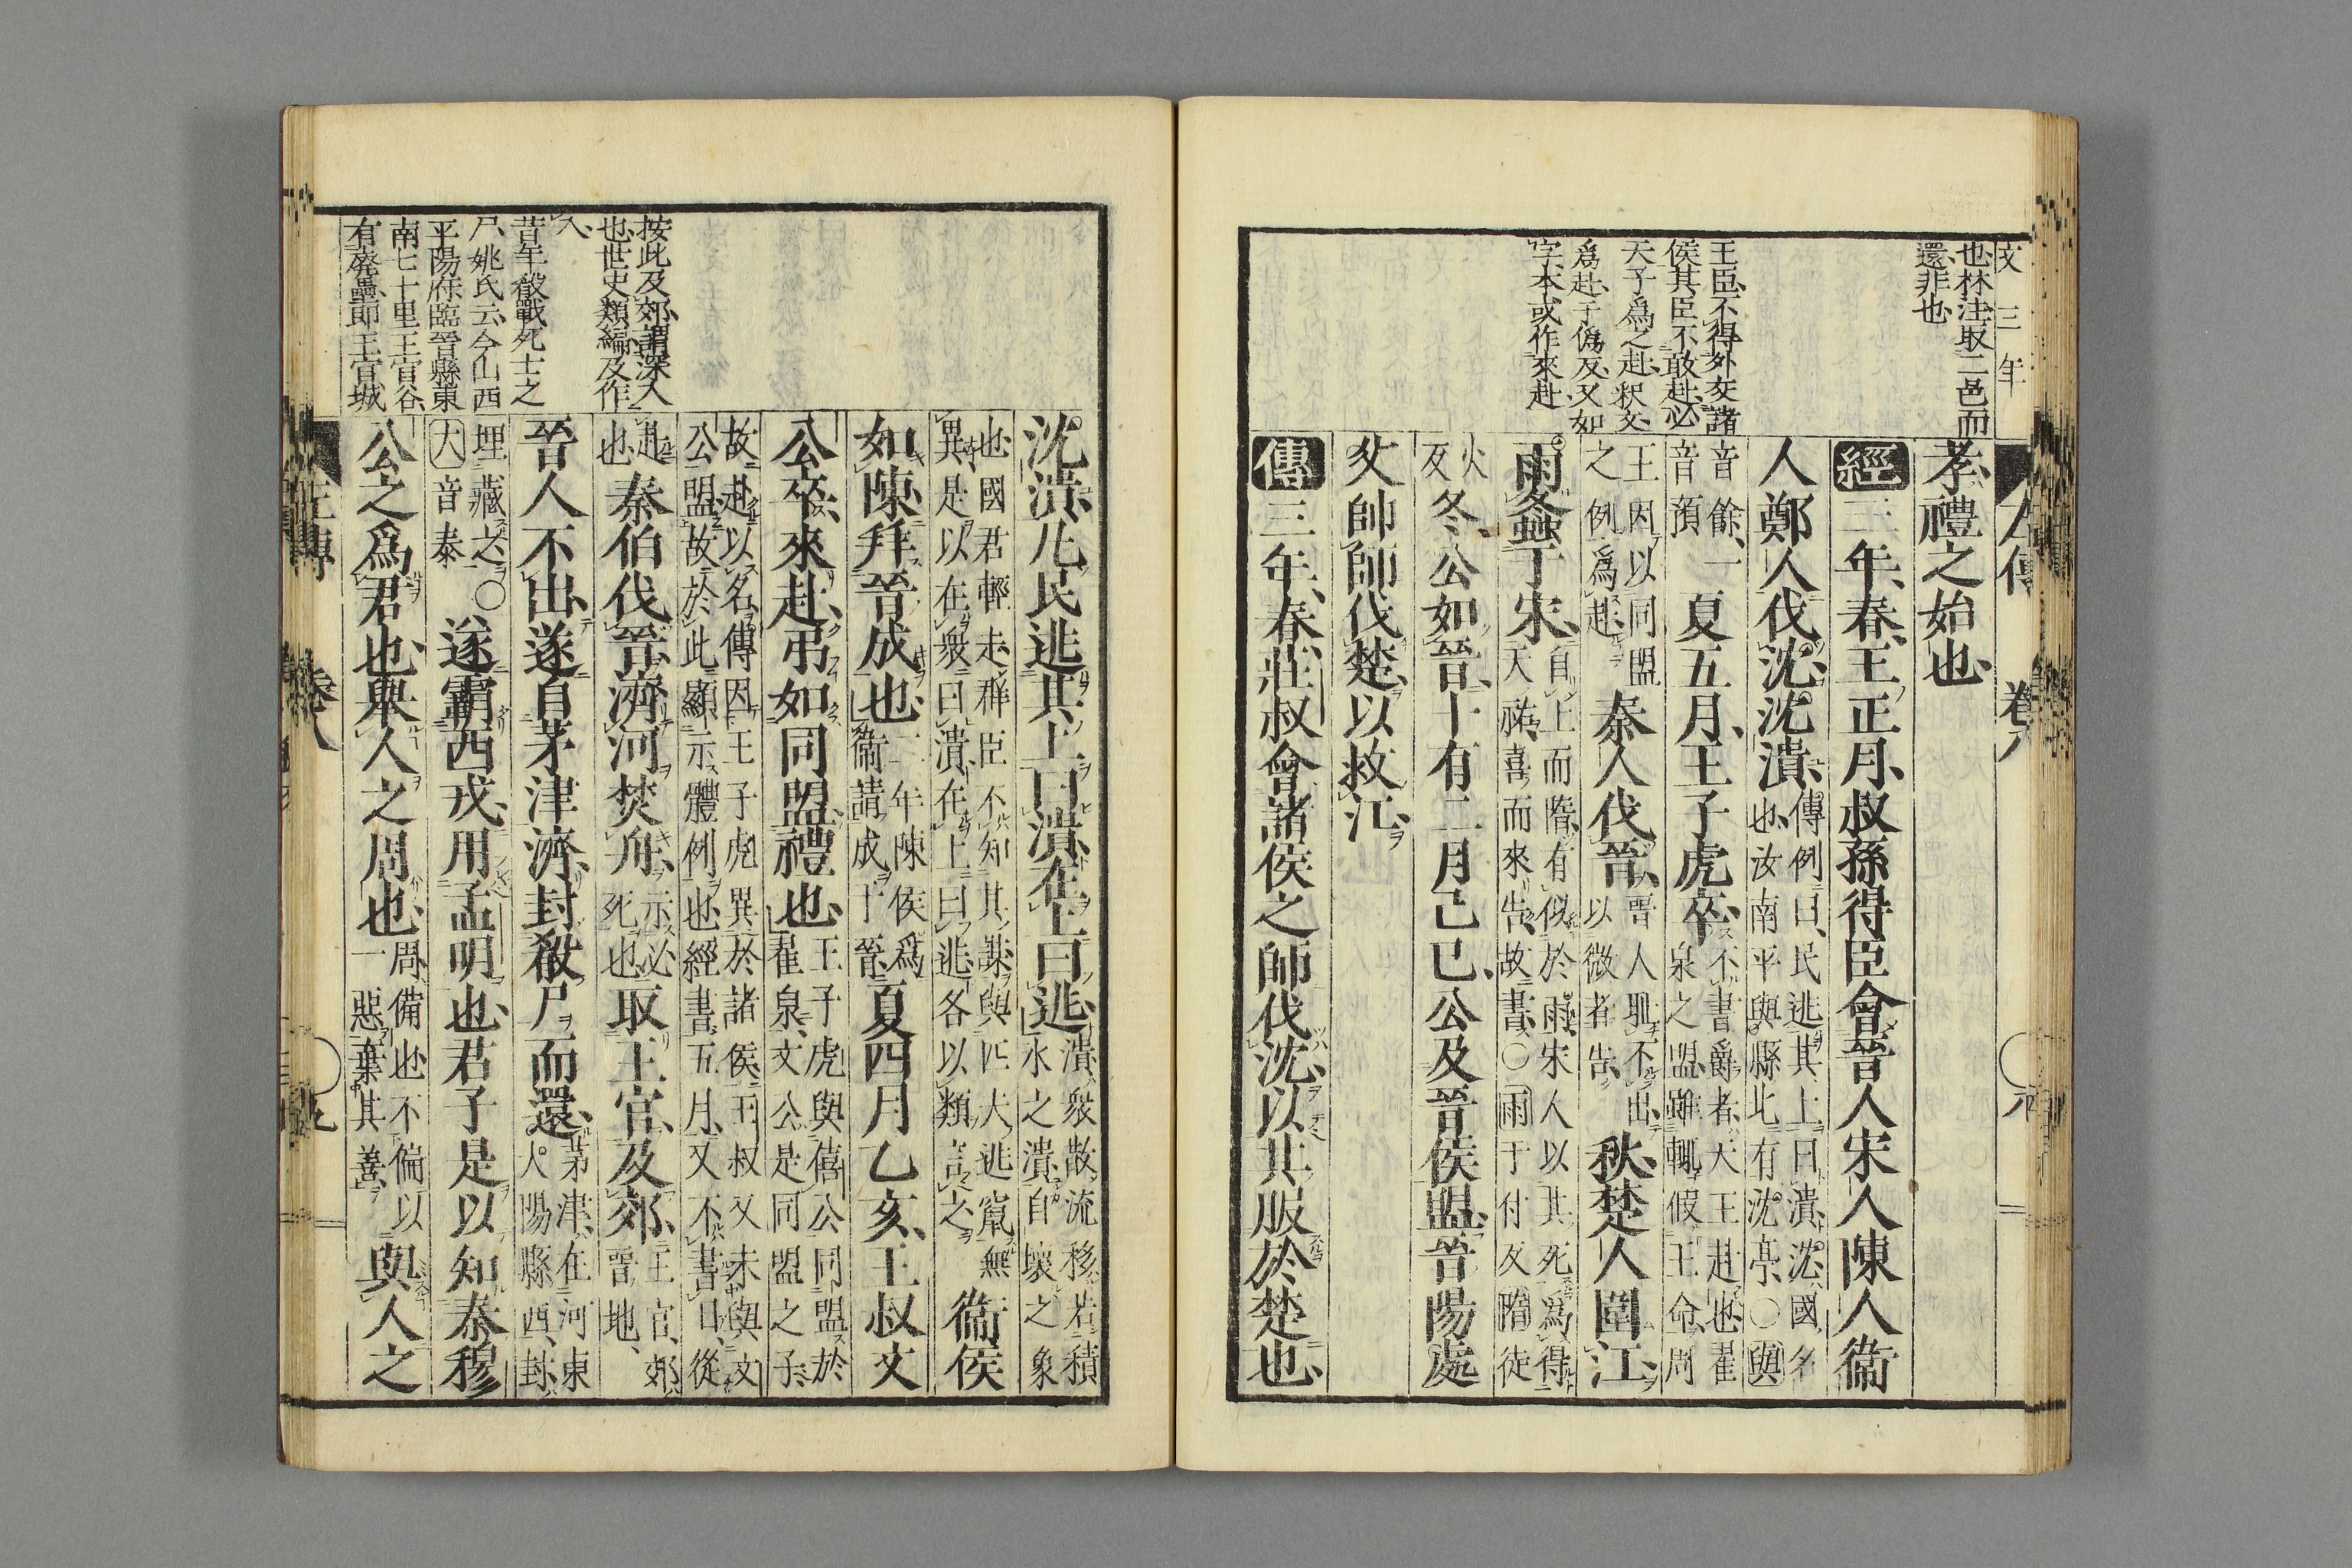 文三年
也林注取二邑而
還非也
王臣不得外交諸
侯其臣不敢赴必
天子爲之赴釈文
爲赴于僞反又如
字本或作來赴
左傳 卷八
孝禮之始也
經三年春王正月叔孫得臣會晉人宋人陳人衞
人鄭人伐沈沈潰
傳例曰民逃其上曰潰沈國名
也汝南平輿縣北有沈亭○輿
音餘一
音預
夏五月王子虎卒
不書爵者天王赴也翟
泉之盟雖輒假王命周
王因以同盟
之例爲赴
秦人伐晉
晉人恥不出
以微者告
秋楚人圍江
雨螽于宋
自上而隋有似於雨宋人以其死爲得
天祐喜而來告故書○雨于付反隋徒
火
反
冬公如晉十有二月己巳公及晉侯盟晉陽處
父帥師伐楚以救江
傳三年春莊叔會諸侯之師伐沈以其服於楚也
按此及郊謂深入
也世史類編及作
入
昔年殽戰死士之
尸姚氏云今山西
平陽府臨晉縣東
南七十里王官谷
有廃壘即王官城
沈潰凡民逃其上曰潰在上曰逃
潰衆散流移若積
水之潰自壞之象
也國君輕走群臣不知其謀與匹夫逃竄無
異是以在衆曰潰在上曰逃各以類言之
衞侯
如陳拜晉成也
二年陳侯爲
衞請成于晉
夏四月乙亥王叔文
公卒來赴弔如同盟禮也
王子虎與僖公同盟於
翟泉文公是同盟之子
故赴以名傳因王子虎異於諸侯王叔又未與文
公盟故於此顯示體例也經書五月又不書日從
赴
也
秦伯伐晉濟河焚舟
示必
死也
取王官及郊
王官郊
晉地
晉人不出遂自茅津濟封殽尸而還
茅津在河東
大陽縣西封
埋藏之○
大音泰
遂霸西戎用孟明也君子是以知秦穆
公之爲君也舉人之周也
周備也不偏以
一惡棄其善
與人之
左傳 卷八 九